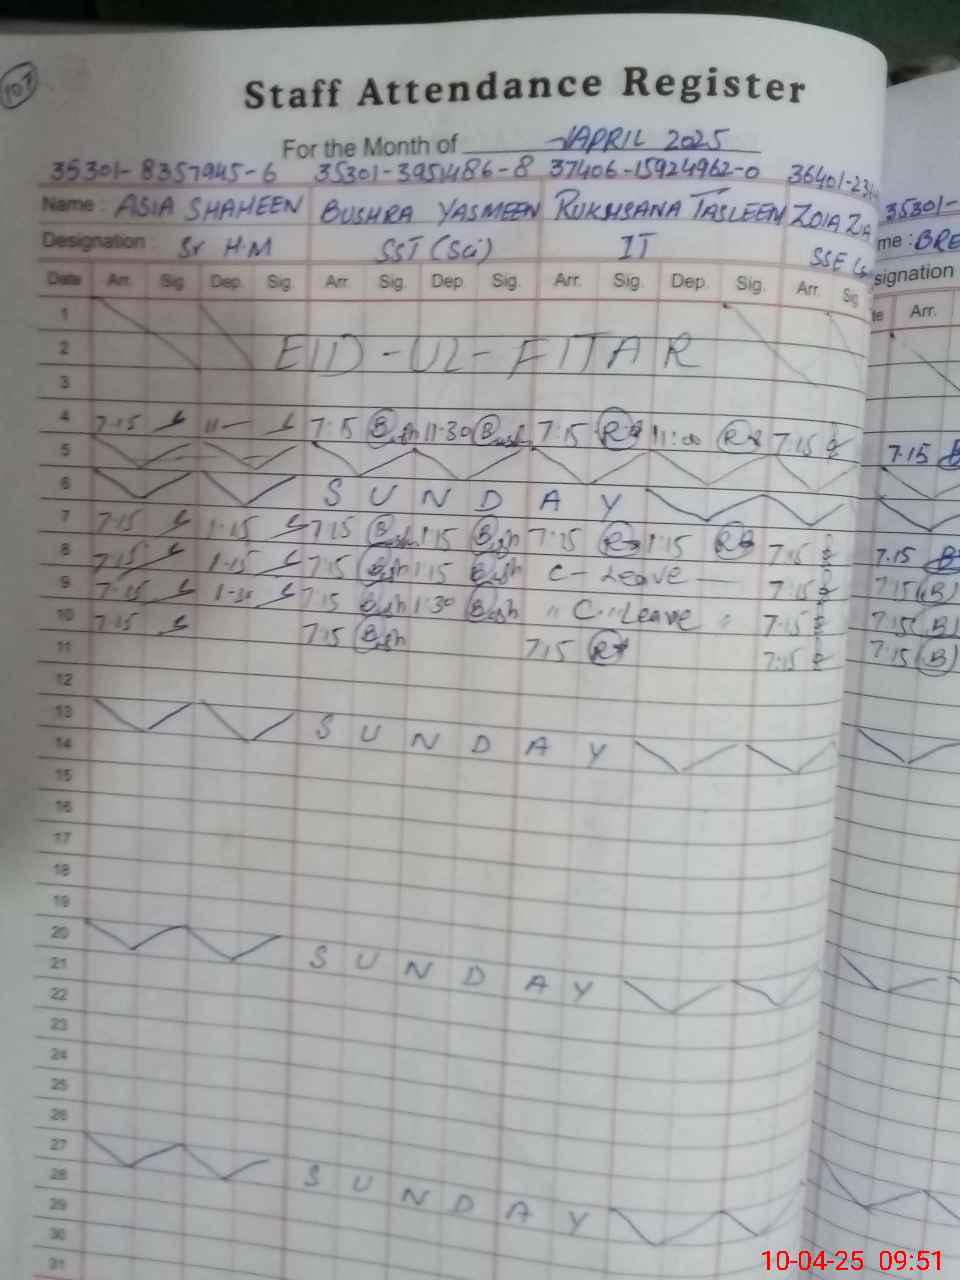 107
Staff Attendance Register
For the Month of APRIL 2025
35301-8357945-6 35301-3951486-8 37406-15924962-0 36401-231 35301-
Name : ASIA SHAHEEN BUSHRA YASMEEN RUKHSANA TASLEEM ZOIA ZA me : BRE
Designation : Sr H.M SST (Sci) IT SSE signation
Date Arr. Sig. Dep. Sig. Arr. Sig. Dep. Sig. Arr. Sig. Dep. Sig. Arr. Sig te Arr.
1
2 EID-UL-FITAR
3
4 7:15 11— 7:15 Bush 11:30 Bush 7:15 R 11:00 R 7:15 7.15 B
5
6 SUNDAY
7 7:15 1:15 7:15 Bush 1:15 Bush 7:15 R 1:15 R 7:15 7.15 B
8 7:15 1:15 7:15 Bush 1:15 Bush C-Leave 7:15 7:15 (B)
9 7:15 1:30 7:15 Bush 1:30 Bush " C " Leave " 7:15 7:15 (B)
10 7:15 7:15 Bush 7:15 R 7:15 7:15 (B)
11
12
13 SUNDAY
14
15
16
17
18
19
20 SUNDAY
21
22
23
24
25
26
27 SUNDAY
28
29
30
31
10-04-25 09:51